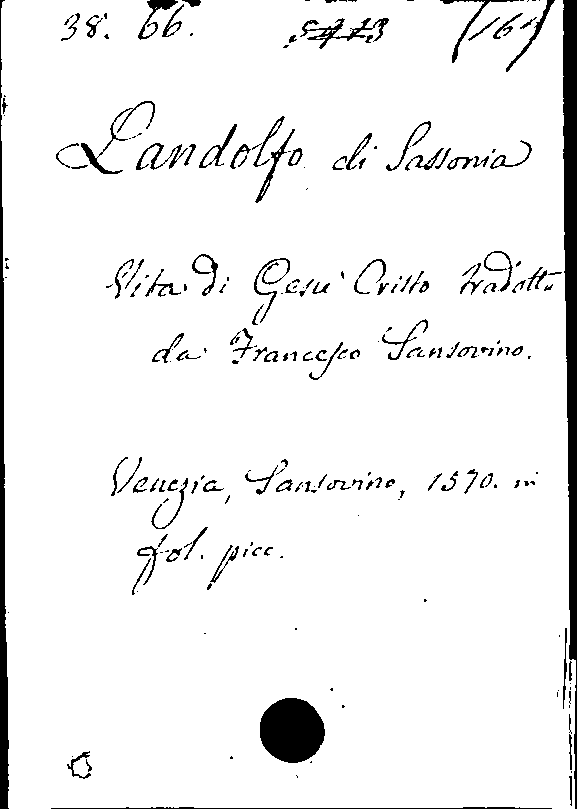 38. 66.
Landolfo di Sassonia
Vita di Gesù Cristo tradotta
da Francesco Sansovino.
Venezia, Sansovino, 1570. in
fol. picc.